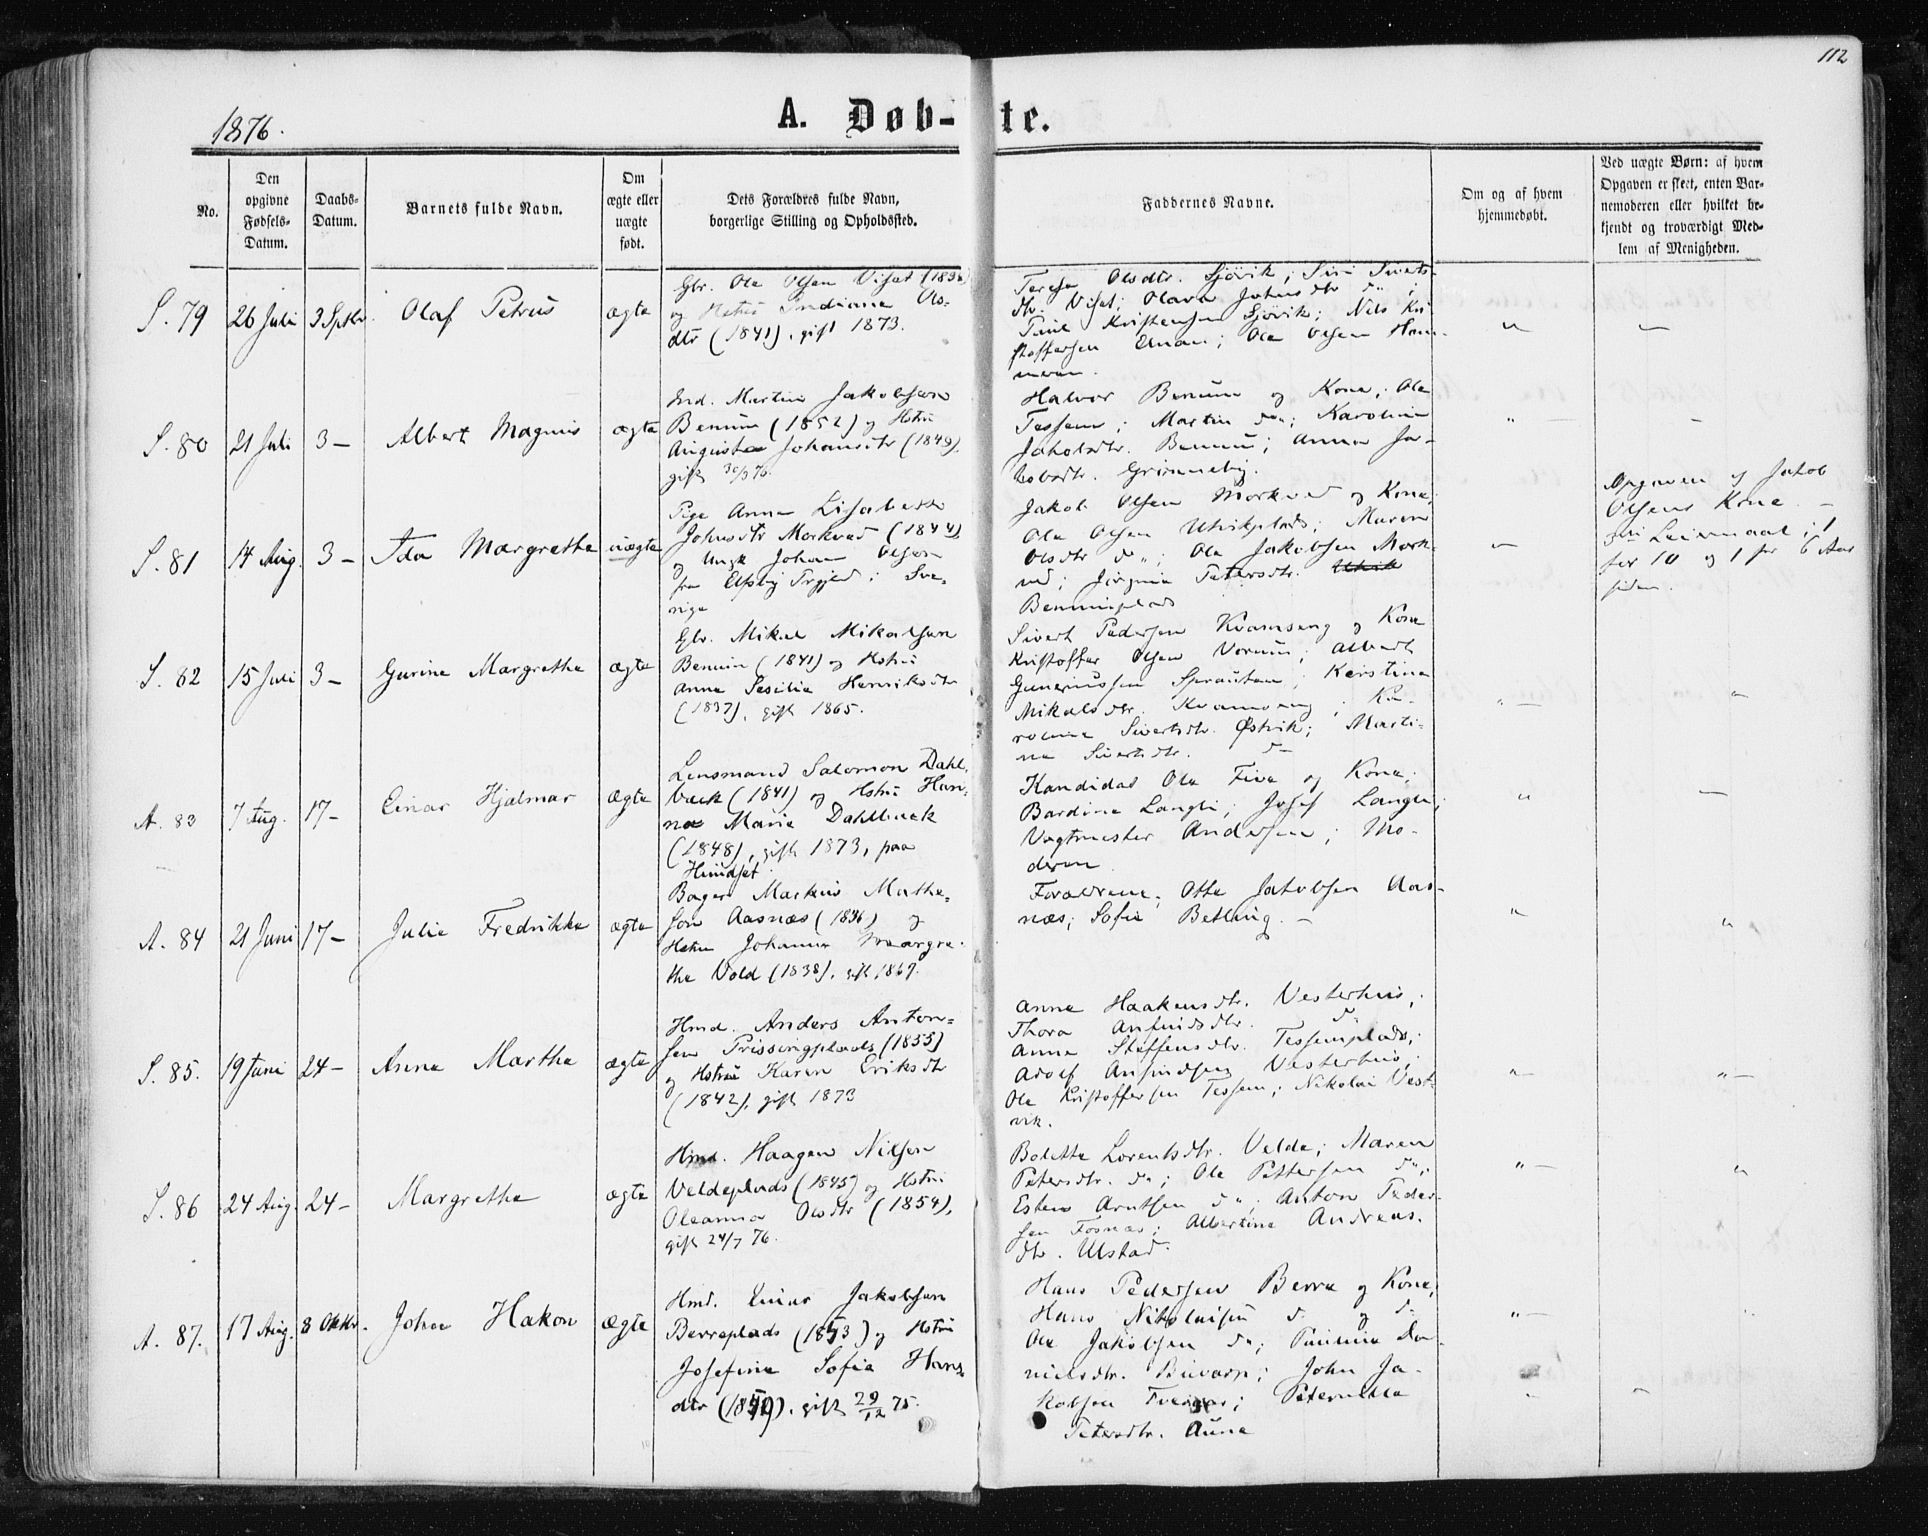 112
1876.
A. Døb-te.
No.
Den opgivne Fødsels-Datum.
Daabs-Datum.
Barnets fulde Navn.
Om ægte eller uægte født.
Dets Forældres fulde Navn, borgerlige Stilling og Opholdssted.
Faddernes Navne.
Om og af hvem hjemmedøbt.
Ved uægte Børn: af hvem Opgaven er skeet, enten Barnemoderen eller hvilket bekjendt og troværdigt Medlem af Menigheden.
S. 79
26 Juli
3 Septbr.
Olaf Petrus
ægte
Gbr. Ole Olsen Viset
og Hstru Indiana Ols-
dtr (1841), gift 1873.
Teresa Olsdtr. Sjøvik; Siri Siverts-
dtr. Viset; Olava Johnsdtr do;
Paul Kristensen Sjøvik; Nils Kri-
stoffersen; Ole Olsen Ham-
meren.
S. 80
21 Juli
3 –
Albert Magnus
ægte
Ind. Martin Jakobsen
Benum (1852) og Hstru
Augusta Johansdtr (1849),
gift 30/3 76.
Halvor Benum og Kone; Ole
Tessem; Martin do; Karoline
Jakobsdtr. Benum; Anna Ja-
kobsdtr. Grønneby.
S. 81
14 Aug.
3 –
Ida Margrethe
uægte
Pige Anna Lisabeth
Johnsdtr Morkved (1844)
og Ungk Johan Olsen
fra i Sve-
rige
Jakob Olsen Morkved og Kone;
Ole Olsen Utvikplads; Maren
Olsdtr do; Ole Jakobsen Mork-
ved; Petersdtr. Utvik
Benumplads
Opgaven af Jakob
Olsens Kone –
Leiermaal;
for 10 og 1 for 6 Aar
siden.
S. 82
15 Juli
3 –
Gurine Margrethe
ægte
Gbr. Mikal Mikalsen
Benum (1841) og Hstru
Anne Sesilie Henriksdtr
(1837), gift 1865.
Sivert Pedersen Kvamseng og Kone
Kristoffer Olsen Vorum; Albert
Guneriussen Sprauten; Kerstina
Mikalsdtr. Kvamseng; Ka-
roline Sivertsdtr. Østvik; Marti-
na Sivertsdtr. do
A. 83
7 Aug.
17 –
Einar Hjalmar
ægte
Lensmand Salomon Dahl-
back (1841) og Hstru Han-
na Marie Dahlback
(1848), gift 1873, paa
Heindset.
Kandidat Ole Five og Kone;
Bardine Langli; Josef Langli;
Vagtmester Andersen; Mo-
deren
A. 84
21 Juni
17 –
Julie Fredrikke
ægte
Bager Markus Mathe-
sen Aasnæs (1836) og
Hstru Johanna Margre-
the Vold (1838), gift 1869.
Forældrene; Otte Jakobsen Aas-
næs; Sofie Betting. –
S. 85.
19 Juni
24 –
Anna Martha
ægte
Hmd. Anders Anton-
sen Prissingplads (1855)
og Hstru Karen Eriksdtr
(1842), gift 1873
Anne Haakensdtr. Vesterhus;
Thora Anfindsdtr. do
Anna Steffensdtr. Tessemplads;
Adolf Anfindsen Vesterhus;
Ole Kristoffersen Tessem; Nikolai Vest-
vik.
S. 86
24 Aug.
24 –
Margrethe
ægte
Hmd. Haagen Nilsen
Veldeplads (1845) og Hstru
Oleanna Olsdtr (1854),
gift 24/7 76.
Bolette Lorentsdtr. Velde; Maren
Petersdtr. do; Ole Pettersen do;
Esten Arntsen do; Anton Peder-
sen Fosnæs; Albertine Andreas-
dtr. Ulstad.
A. 87.
17 Aug.
8 Oktbr.
John Hakon
ægte
Hmd. Einar Jakobsen
Berreplads (1853) og Hstru
Josefine Sofia Hans-
dtr (1859), gift 29/12 75.
Hans Pedersen Berre og Kone;
Hans Nikolaisen do og do
Ole Jakobsen do; Paulina Da-
nielsdtr.; John Ja-
kobsen; Peternella
Petersdtr. Aune